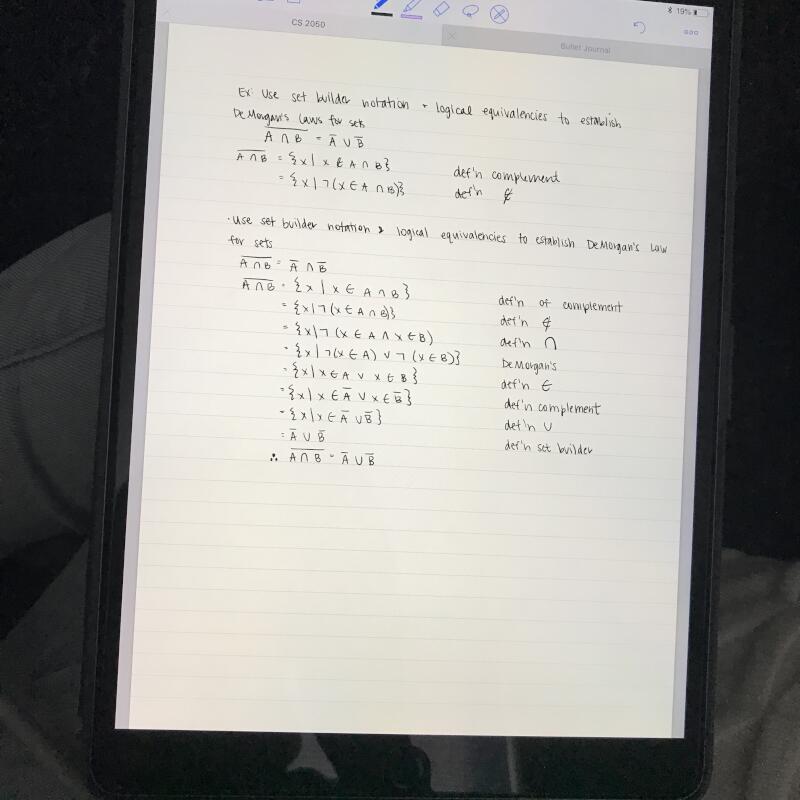 19%
CS 2050
Bullet Journal
Ex: Use set builder notation + logical equivalencies to establish
DeMorgan's Laws for sets
A̅ ̅∩̅ ̅B̅ = A̅ ∪ B̅
A̅ ̅∩̅ ̅B̅ = {x | x ∉ A ∩ B} def'n complement
= {x | ¬(x ∈ A ∩ B)} def'n ∉
· Use set builder notation & logical equivalencies to establish DeMorgan's Law
for sets
A̅ ̅∩̅ ̅B̅ = A̅ ∩ B̅
A̅ ̅∩̅ ̅B̅ = {x | x ∈ A ∩ B} def'n of complement
= {x | ¬(x ∈ A ∩ B)} def'n ∉
= {x | ¬(x ∈ A ∧ x ∈ B) def'n ∩
= {x | ¬(x ∈ A) ∨ ¬(x ∈ B)} DeMorgan's
= {x | x ∈ A ∨ x ∈ B} def'n ∈
= {x | x ∈ A̅ ∨ x ∈ B̅} def'n complement
= {x | x ∈ A̅ ∪ B̅} def'n ∪
= A̅ ∪ B̅ def'n set builder
∴ A̅ ̅∩̅ ̅B̅ = A̅ ∪ B̅